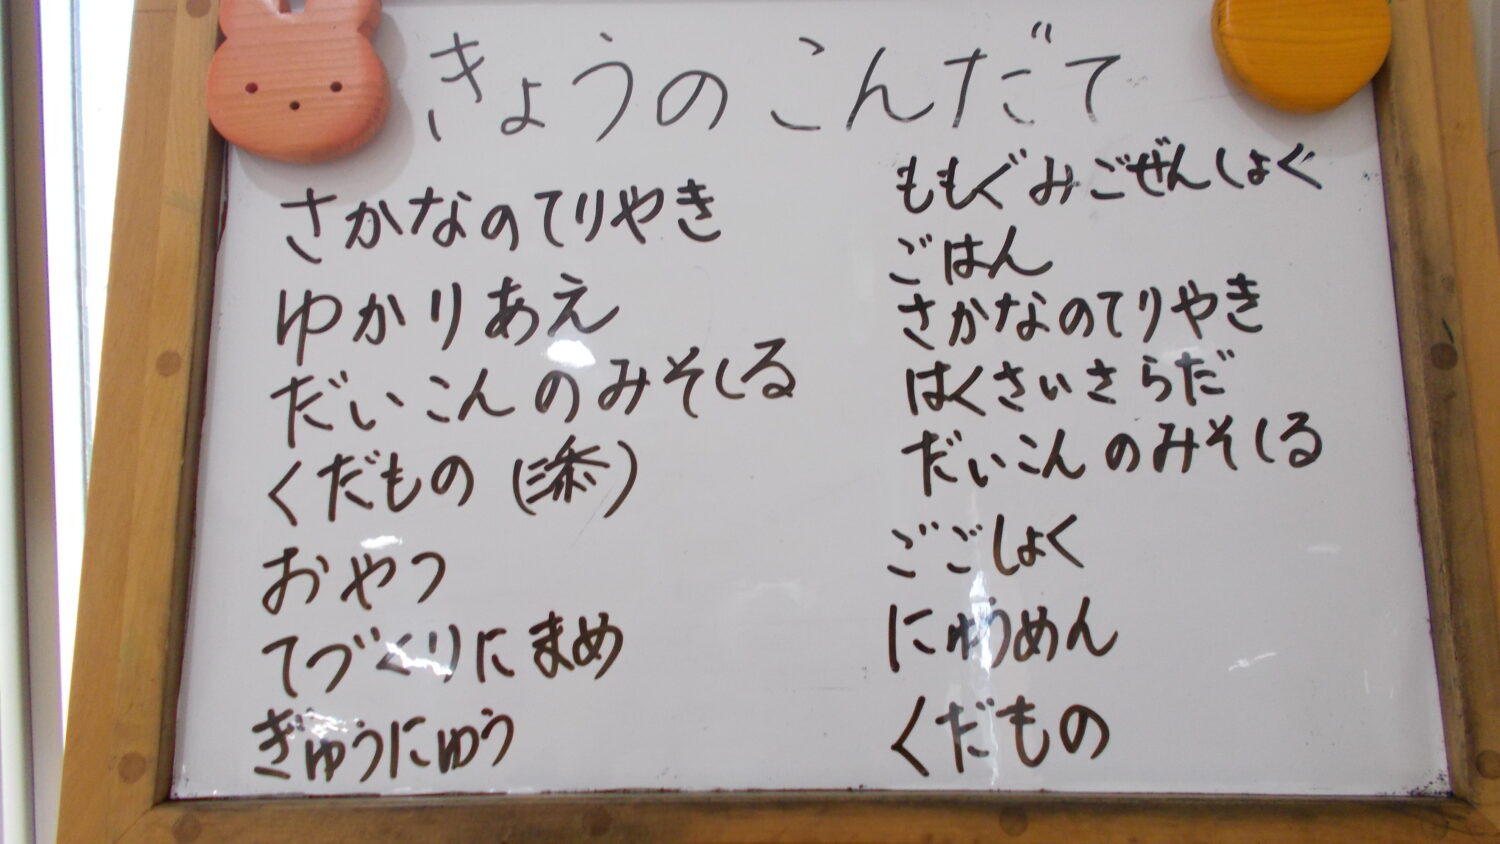 きょうのこんだて
さかなのてりやき
ゆかりあえ
だいこんのみそしる
くだもの
おやつ
てづくりにまめ
ぎゅうにゅう
ももぐみごぜんしょく
ごはん
さかなのてりやき
はくさいさらだ
だいこんのみそしる
ごごしょく
にゅうめん
くだもの